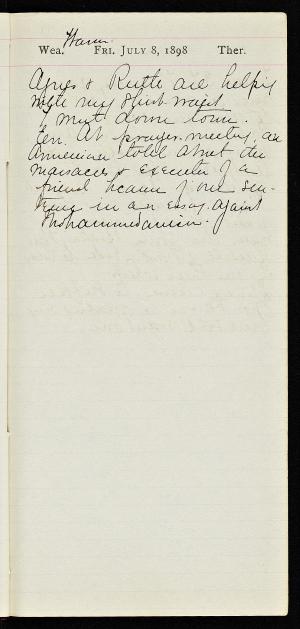 Warm
Wea. FRI. JULY 8, 1898 Ther.
Agnes & Ruth are helping
with my shirt waist
I went down town.
Ev. At prayer-meeting, an
Armenian told about the
massacres & execution of a
friend because of one sen-
tence in an essay against
Mohammedanism.